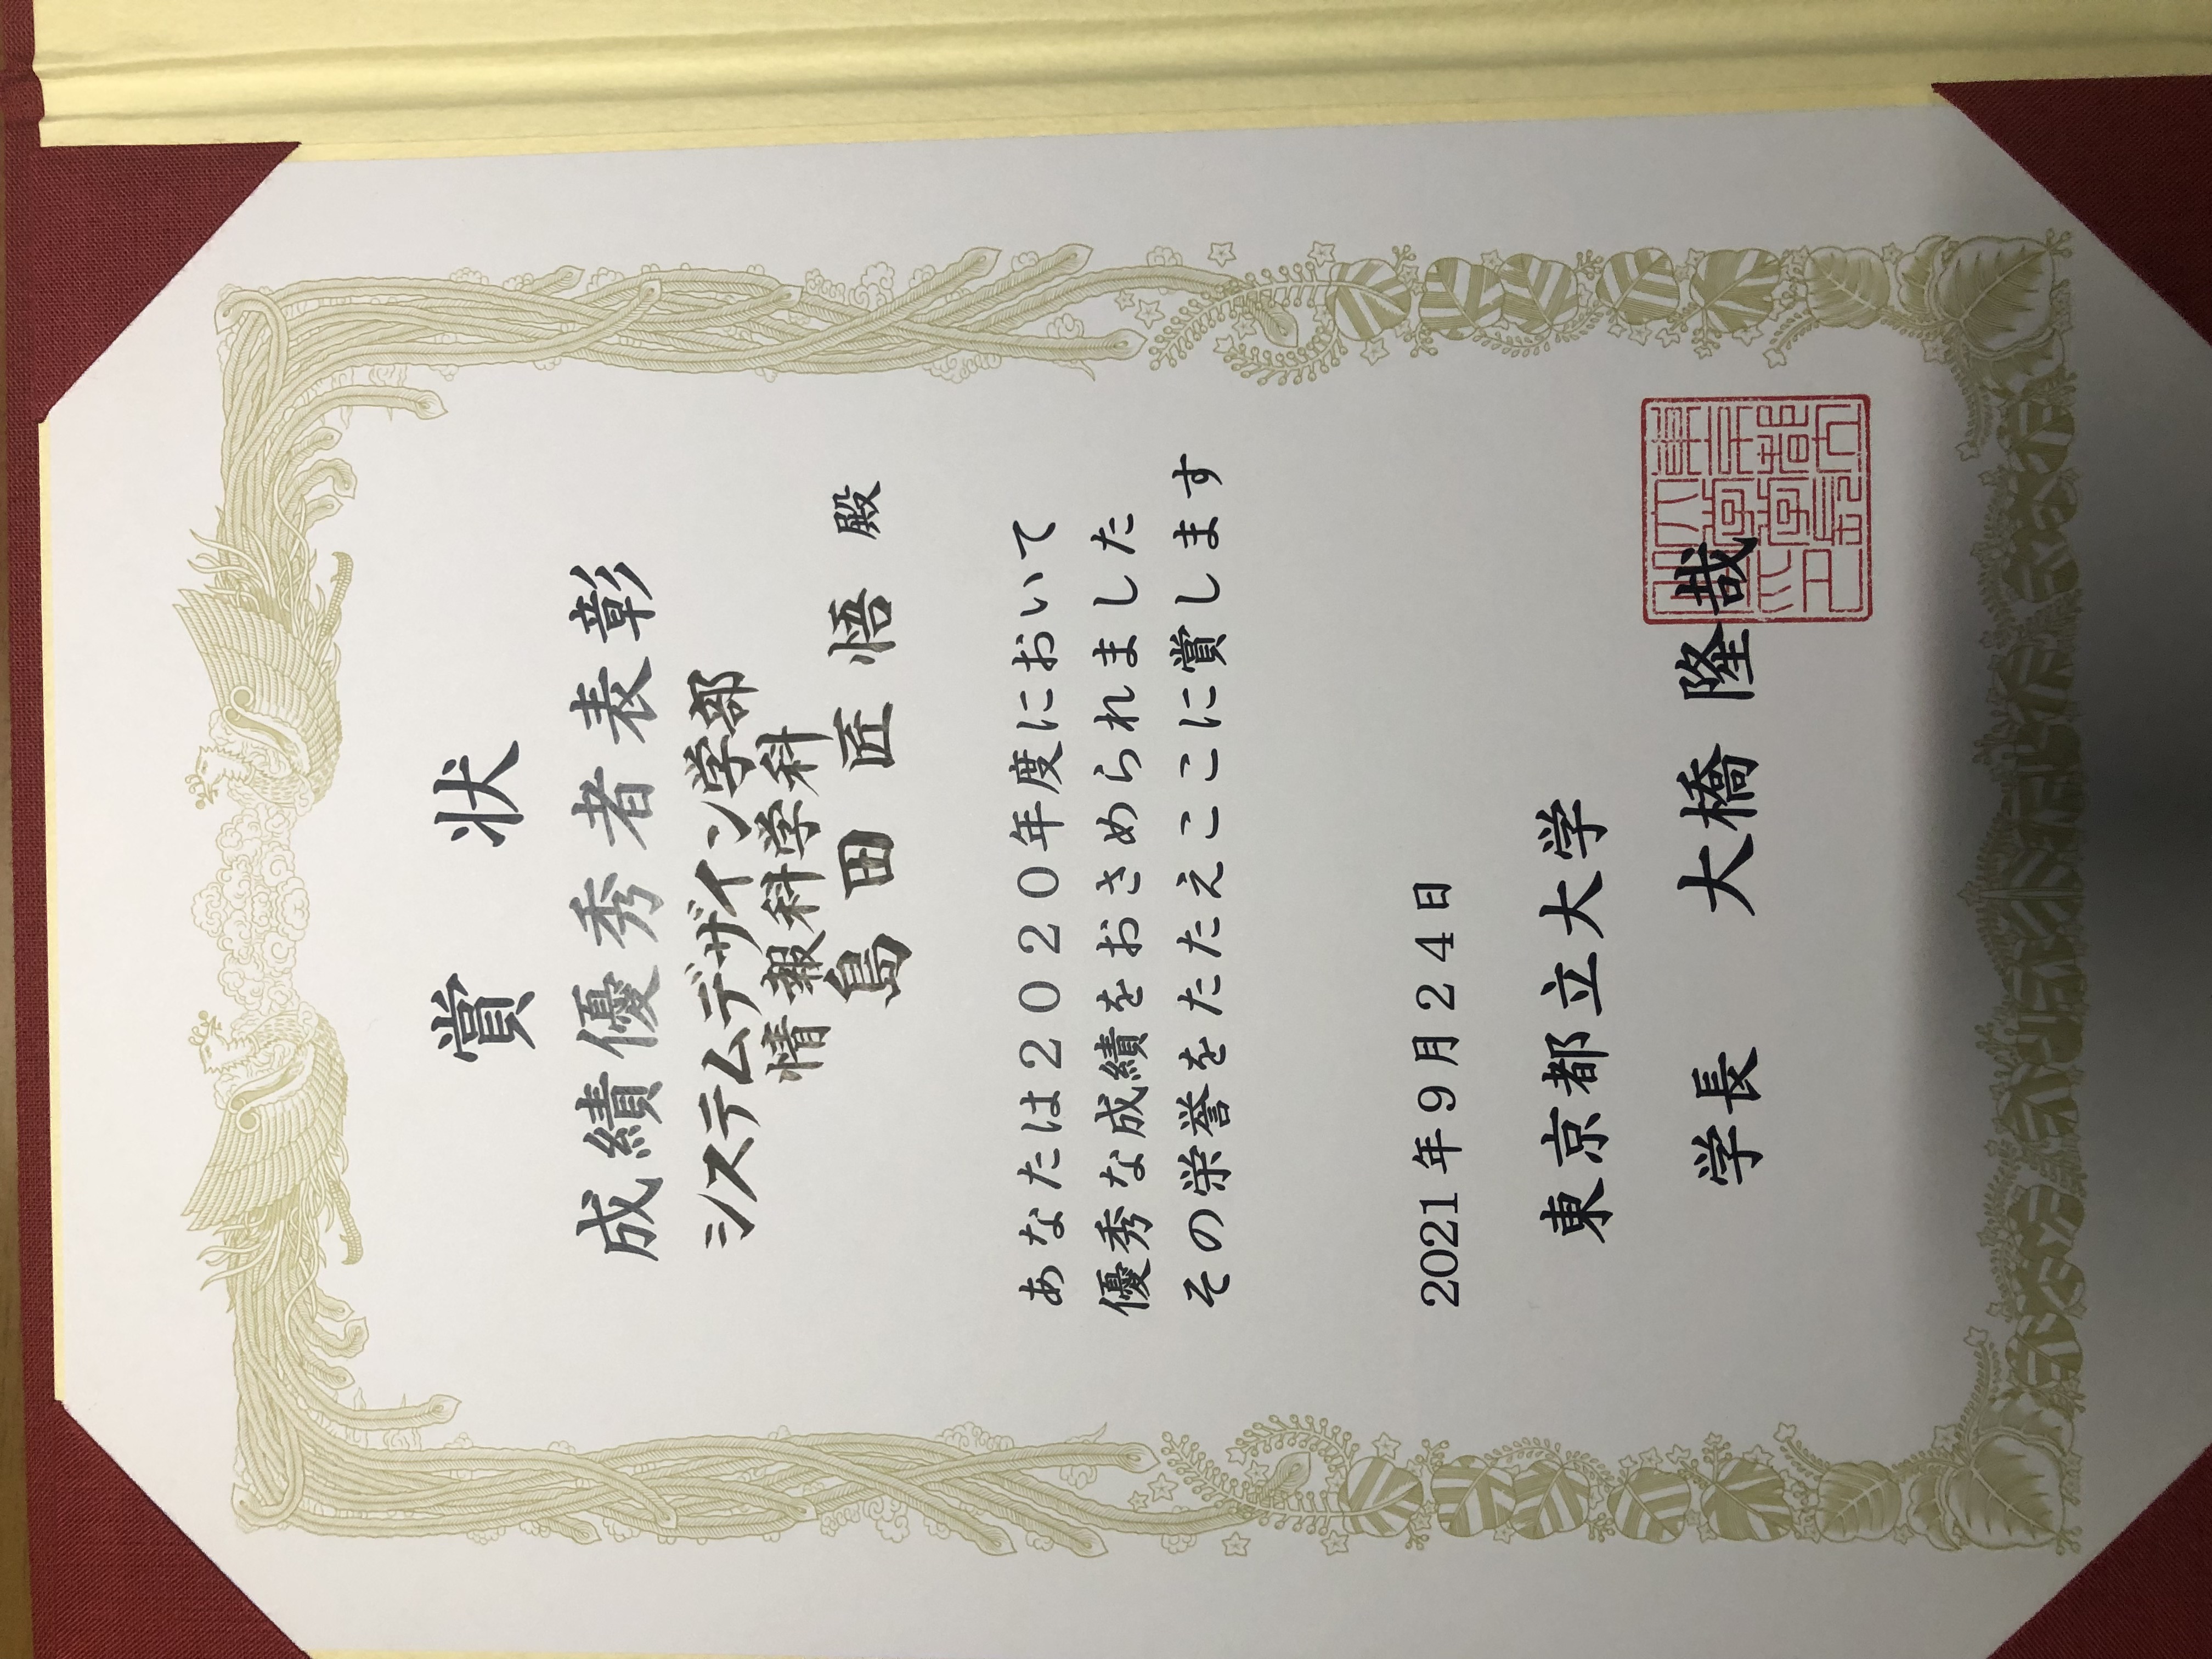 賞 状
成績優秀者表彰
システムデザイン学部
情報科学科
島田匠悟 殿
あなたは２０２０年度において
優秀な成績をおさめられました
その栄誉をたたえここに賞します
2021年９月２４日
東京都立大学
学長 大橋 隆哉
東京都立
大学学長
之印